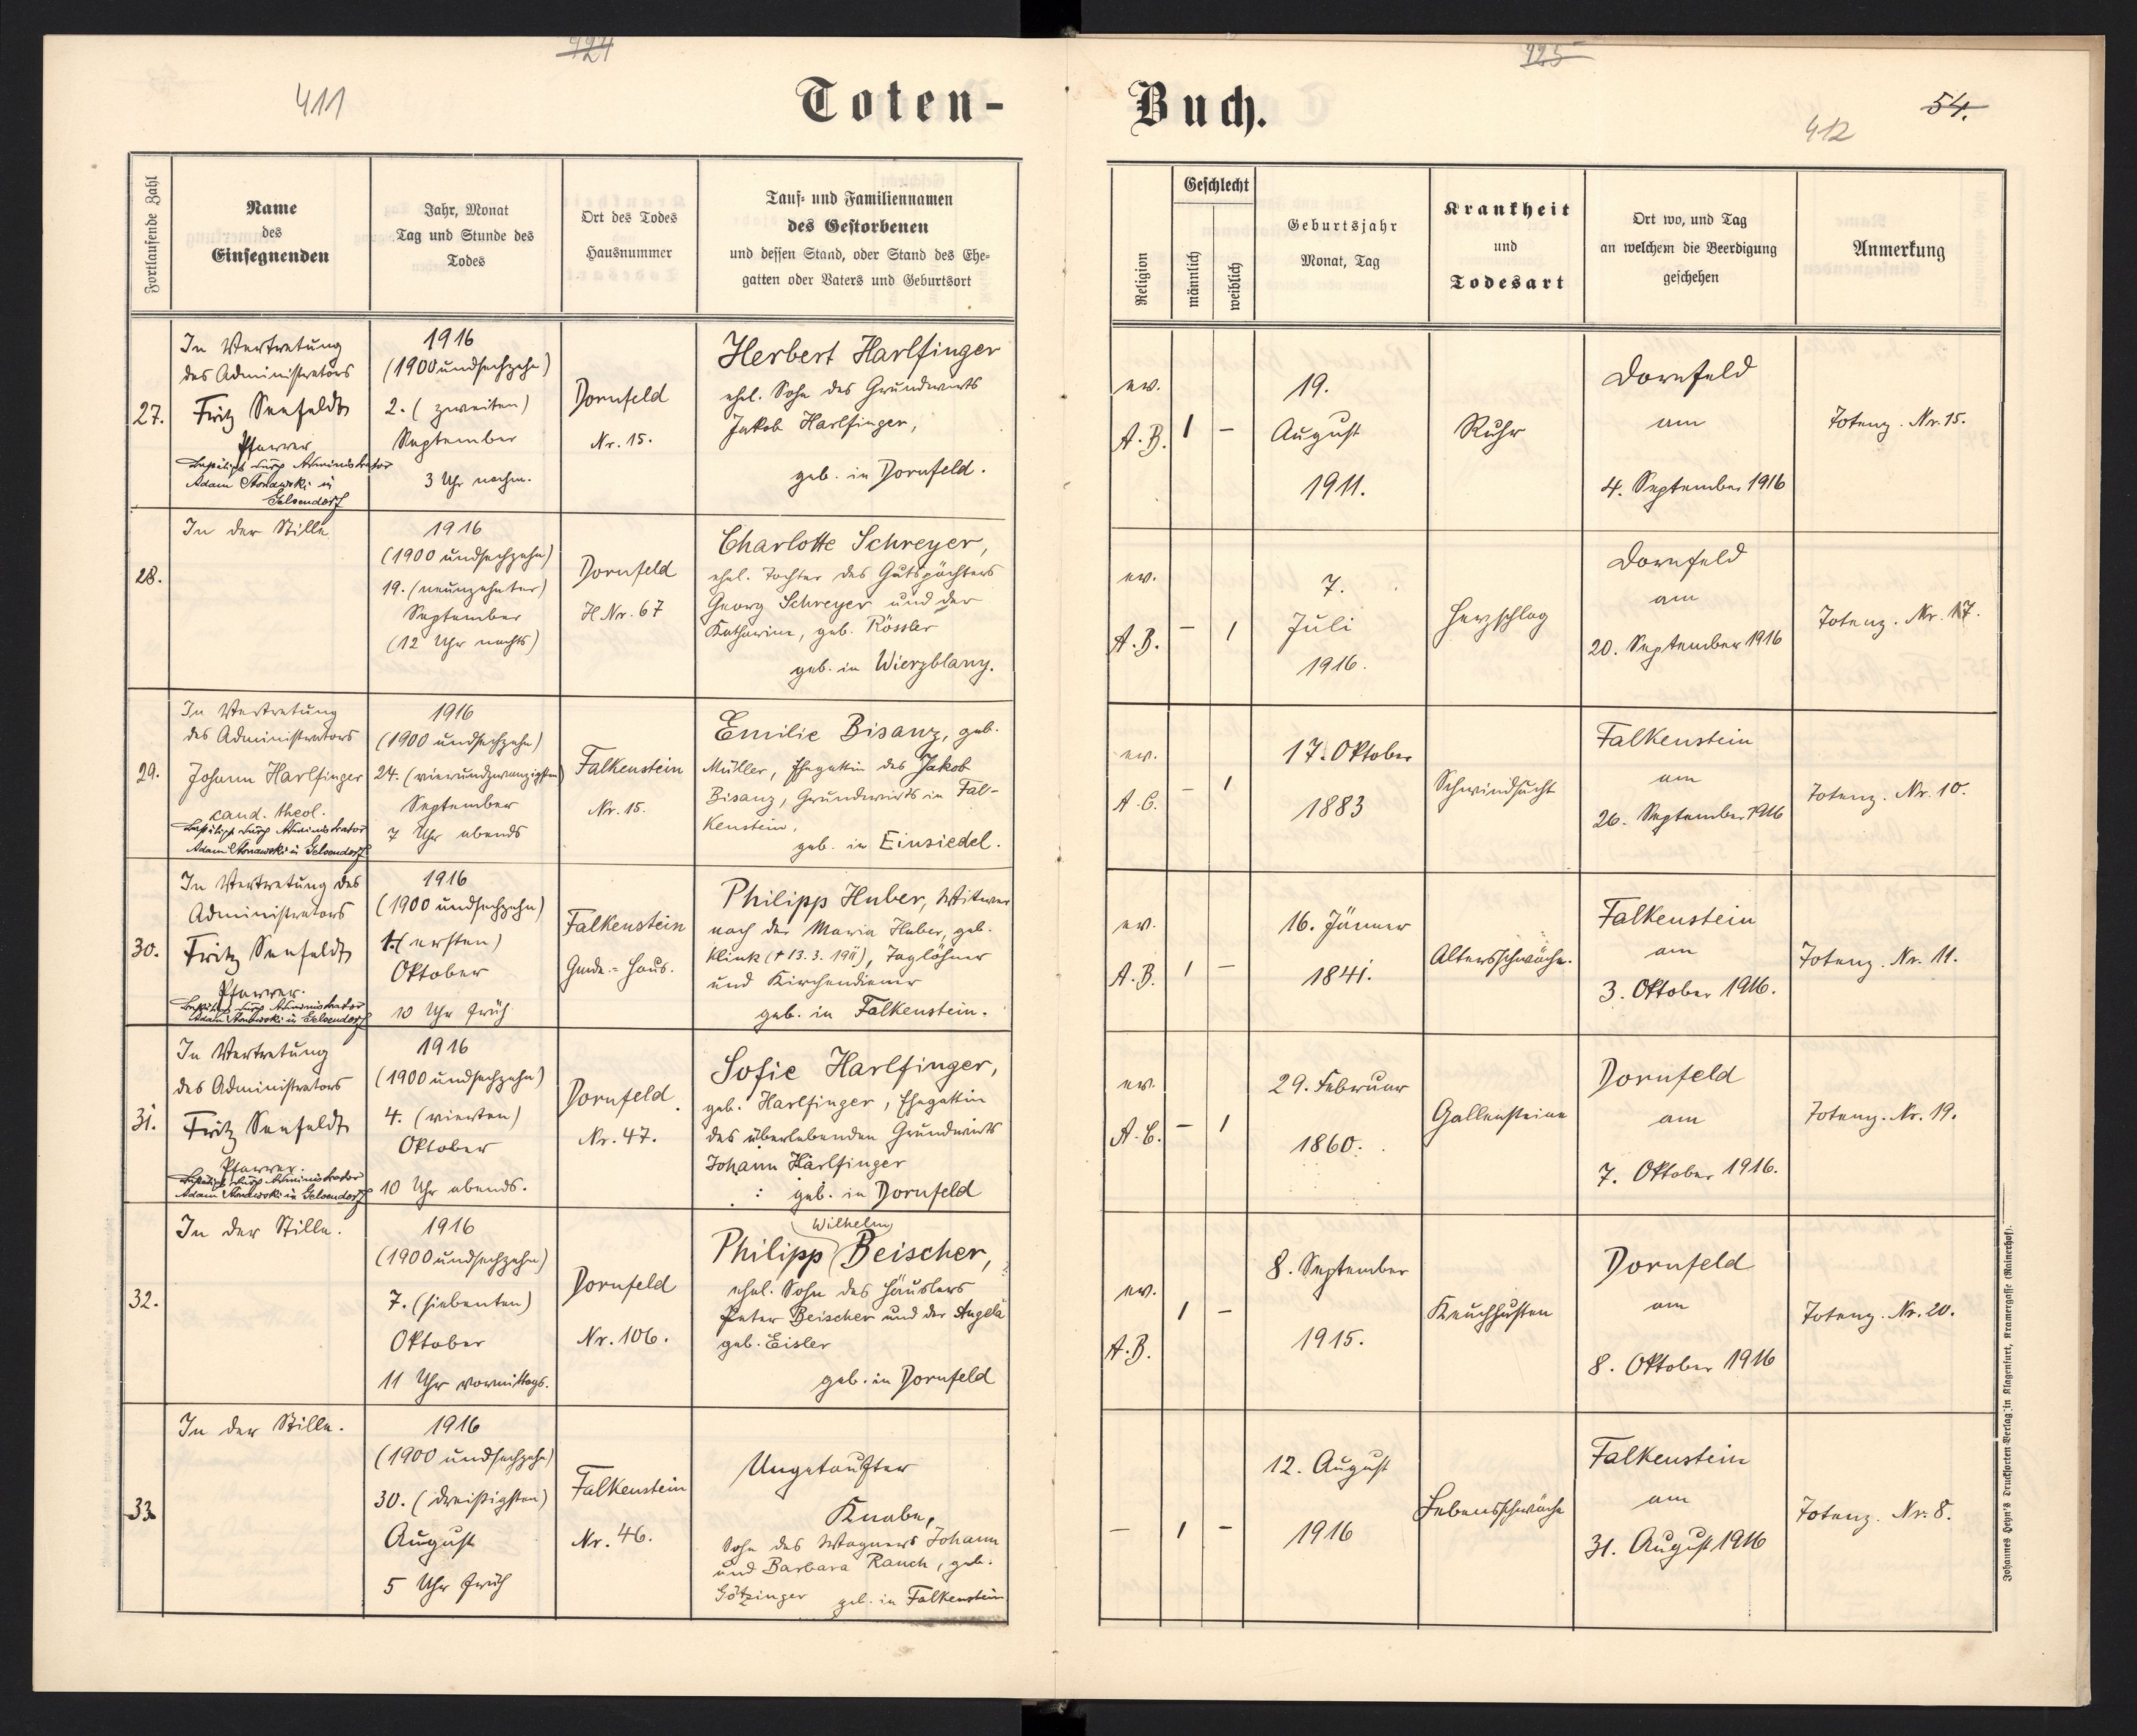 424
411
Toten-
Fortlaufende Zahl
Name
des
Einsegnenden
Jahr, Monat
Tag und Stunde des
Todes
Ort des Todes
Hausnummer
Tauf- und Familiennamen
des Gestorbenen
und dessen Stand, oder Stand des Ehe-
gatten oder Vaters und Geburtsort
27.
In Vertretung
des Administrators
Fritz Seefeldt
Pfarrer
Bestätigt durch Administrator
Adam Stonawski in
Gelsendorf
1916
(1900 undsechzehn)
2. (zweiten)
September
3 Uhr nachm.
Dornfeld
Nr. 15.
Herbert Harlfinger
ehel. Sohn des Grundwirts
Jakob Harlfinger,
geb. in Dornfeld.
28.
In der Stille
1916
(1900 undsechzehn)
19. (neunzehnter)
September
(12 Uhr nachts)
Dornfeld
H Nr. 67
Charlotte Schreyer,
ehel. Tochter des Gutspächters
Georg Schreyer und der
Katharina, geb. Rössler
geb. in Wierzblany.
29.
In Vertretung
des Administrators
Johann Harlfinger
cand. theol.
Bestätigt durch Administrator
Adam Stonawski in Gelsendorf
1916
(1900 undsechzehn)
24. (vierundzwanzigsten)
September
7 Uhr abends
Falkenstein
Nr. 15.
Emilie Bisanz, geb.
Müller, Ehegattin des Jakob
Bisanz, Grundwirts in Fal-
kenstein,
geb. in Einsiedel.
30.
In Vertretung des
Administrators
Fritz Seefeldt
Pfarrer.
Bestätigt durch Administrator
Adam Stonawski in Gelsendorf
1916
(1900 undsechzehn)
1. (ersten)
Oktober
10 Uhr früh
Falkenstein
Gmde.-Haus.
Philipp Huber, Witwer
nach der Maria Huber, geb.
Klink († 13. 3. 1911), Taglöhner
und Kirchendiener
geb. in Falkenstein.
31.
In Vertretung
des Administrators
Fritz Seefeldt
Pfarrer.
Bestätigt durch Administrator
Adam Stonawski in Gelsendorf
1916
(1900 undsechzehn)
4. (vierten)
Oktober
10 Uhr abends.
Dornfeld.
Nr. 47.
Sofie Harlfinger,
geb. Harlfinger, Ehegattin
des überlebenden Grundwirts
Johann Harlfinger
geb. in Dornfeld
32.
In der Stille.
1916
(1900 undsechzehn)
7. (siebenten)
Oktober
11 Uhr vormittags.
Dornfeld
Nr. 106.
Wilhelm
Philipp Beischer,
ehel. Sohn des Häuslers
Peter Beischer und der Angela
geb. Eisler
geb. in Dornfeld
33.
In der Stille.
1916
(1900 undsechzehn)
30. (dreißigsten)
August
5 Uhr früh
Falkenstein
Nr. 46.
Ungetaufter
Knabe,
Sohn des Wagners Johann
und Barbara Rauch, geb.
Götzinger geb. in Falkenstein
425
Buch.
54.
412
Religion
Geschlecht
männlich
weiblich
Geburtsjahr
Monat, Tag
Krankheit
und
Todesart
Ort wo, und Tag
an welchem die Beerdigung
geschehen
Anmerkung
ev.
A. B.
1
–
19.
August
1911.
Ruhr
Dornfeld
am
4. September 1916
Totenz. Nr. 15.
ev.
A. B.
–
1
7.
Juli
1916.
Herzschlag
Dornfeld
am
20. September 1916
Totenz. Nr. 17.
ev.
A. C.
–
1
17. Oktober
1883
Schwindsucht
Falkenstein
am
26. September 1916
Totenz. Nr. 10.
ev.
A. B.
1
–
16. Jänner
1841.
Altersschwäche.
Falkenstein
am
3. Oktober 1916.
Totenz. Nr. 11.
ev.
A. C.
–
1
29. Februar
1860.
Gallensteine
Dornfeld
am
7. Oktober 1916.
Totenz. Nr. 19.
ev.
A. B.
1
–
8. September
1915.
Keuchhusten
Dornfeld
am
8. Oktober 1916
Totenz. Nr. 20.
–
1
–
12. August
1916
Lebensschwäche
Falkenstein
am
31. August 1916
Totenz. Nr. 8.
Johannes Heyn's Drucksorten Verlag in Klagenfurt, Kramergasse (Rainerhof).